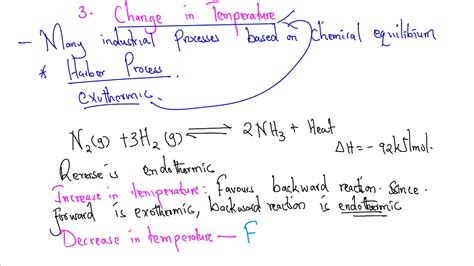 3. Change in Temperature
- Many industrial processes based on Chemical equilibium
* Haber Process.
exothermic.
N₂(g) + 3H₂(g) ⇌ 2NH₃ + Heat
ΔH = -92kJ/mol.
Reverse is endothermic
Increase in temperature: Favours backward reaction. Since.
forward is exothermic, backward reaction is endothermic
Decrease in temperature — F